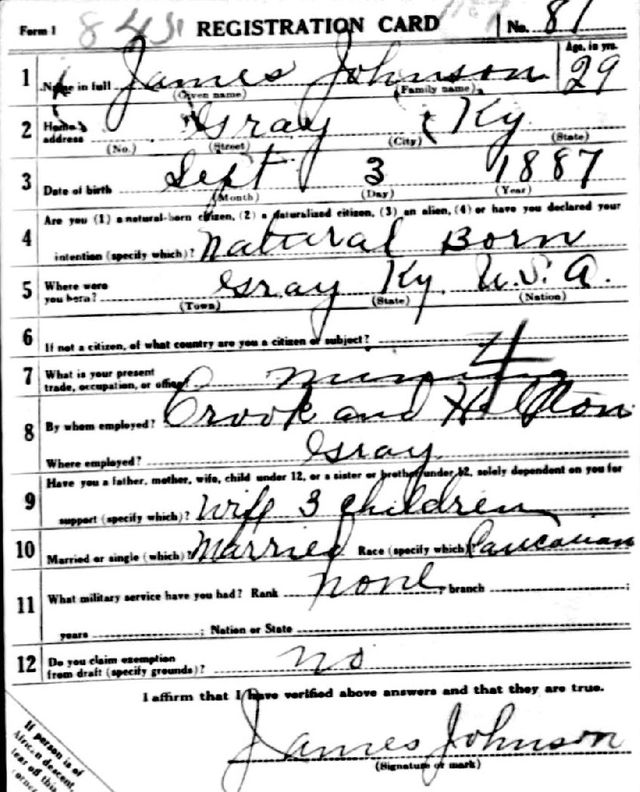 Form 1 REGISTRATION CARD No. 81
Age, in yrs.
1 Name in full James Johnson 29
(Given name) (Family name)
2 Home address Gray Ky
(No.) (Street) (City) (State)
3 Date of birth Sept 3 1887
(Month) (Day) (Year)
Are you (1) a natural-born citizen, (2) a naturalized citizen, (3) an alien, (4) or have you declared your
4 intention (specify which)? Natural Born
5 Where were you born? Gray Ky. U.S.A.
(Town) (State) (Nation)
6 If not a citizen, of what country are you a citizen or subject?
7 What is your present trade, occupation, or office?
8 By whom employed? Crook and
Where employed? Gray
Have you a father, mother, wife, child under 12, or a sister or brother under 12, solely dependent on you for
9 support (specify which)? Wife 3 children
10 Married or single (which)? Married Race (specify which)? Caucasian
11 What military service have you had? Rank none, branch ;
years ; Nation or State
12 Do you claim exemption from draft (specify grounds)? no
I affirm that I have verified above answers and that they are true.
James Johnson
(Signature or mark)
If person is of
African descent,
tear off this
corner